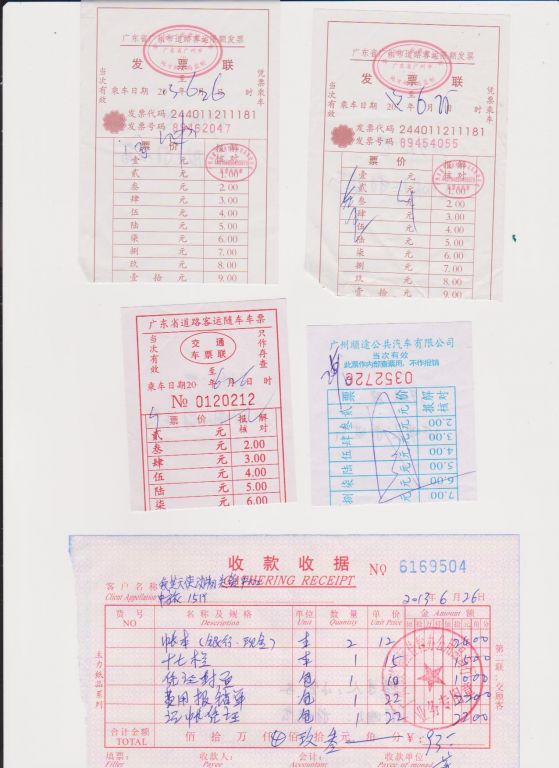 广东省广州市道路客运限额发票
发 票 联
当次有效
凭票乘车
乘车日期 2013 6 26 时
发票代码 244011211181
发票号码 89462047
票 价
报 解 核 对
壹 元 1.00
贰 元 2.00
叁 元 3.00
肆 元 4.00
伍 元 5.00
陆 元 6.00
柒 元 7.00
捌 元 8.00
玖 元 9.00
壹 拾 元
广东省广州市道路客运限额发票
发 票 联
当次有效
凭票乘车
乘车日期 年 6 月 日 时
发票代码 244011211181
发票号码 89454055
票 价
报 解 核 对
壹 元 1.00
贰 元 2.00
叁 元 3.00
肆 元 4.00
伍 元 5.00
陆 元 6.00
柒 元 7.00
捌 元 8.00
玖 元 9.00
壹 拾 元
广东省道路客运随车车票
当次有效
交通
车票联
只作存查
至
乘车日期20 年6月6日 时
№ 0120212
票 价 报 解 核 对
贰 元 2.00
叁 元 3.00
肆 元 4.00
伍 元 5.00
陆 元 6.00
柒 元
广州顺途公共汽车有限公司
当次有效
此票作内部查票用,不作报销
0352720
票 价 报 解 核 对
贰 元 2.00
叁 元 3.00
肆 元 4.00
伍 元 5.00
陆 元 6.00
柒 元 7.00
捌 元
收 款 收 据 № 6169504
GATHERING RECEIPT
客户名称
Client Appellation
2013年6月26日
货 号 名 称 及 规 格 单位 数 量 单 价 金 Amount 额
NO Description Unit Quantity Unit Price
帐本(银行、现金) 本 2 12 24.00
十七栏 本 1 15 15.00
凭证封面 包 1 10 10.00
费用报销单 包 1 22 22.00
记帐凭证 包 1 22 22.00
合计金额 TOTAL 佰 拾 万 仟 佰 玖拾叁元 角 分 ¥: 93
填票: 收款人: 会计: 收款单位
Filler Payee Accountant Payee of money
丰力纸品系列
第二联:交顾客
业务专用章